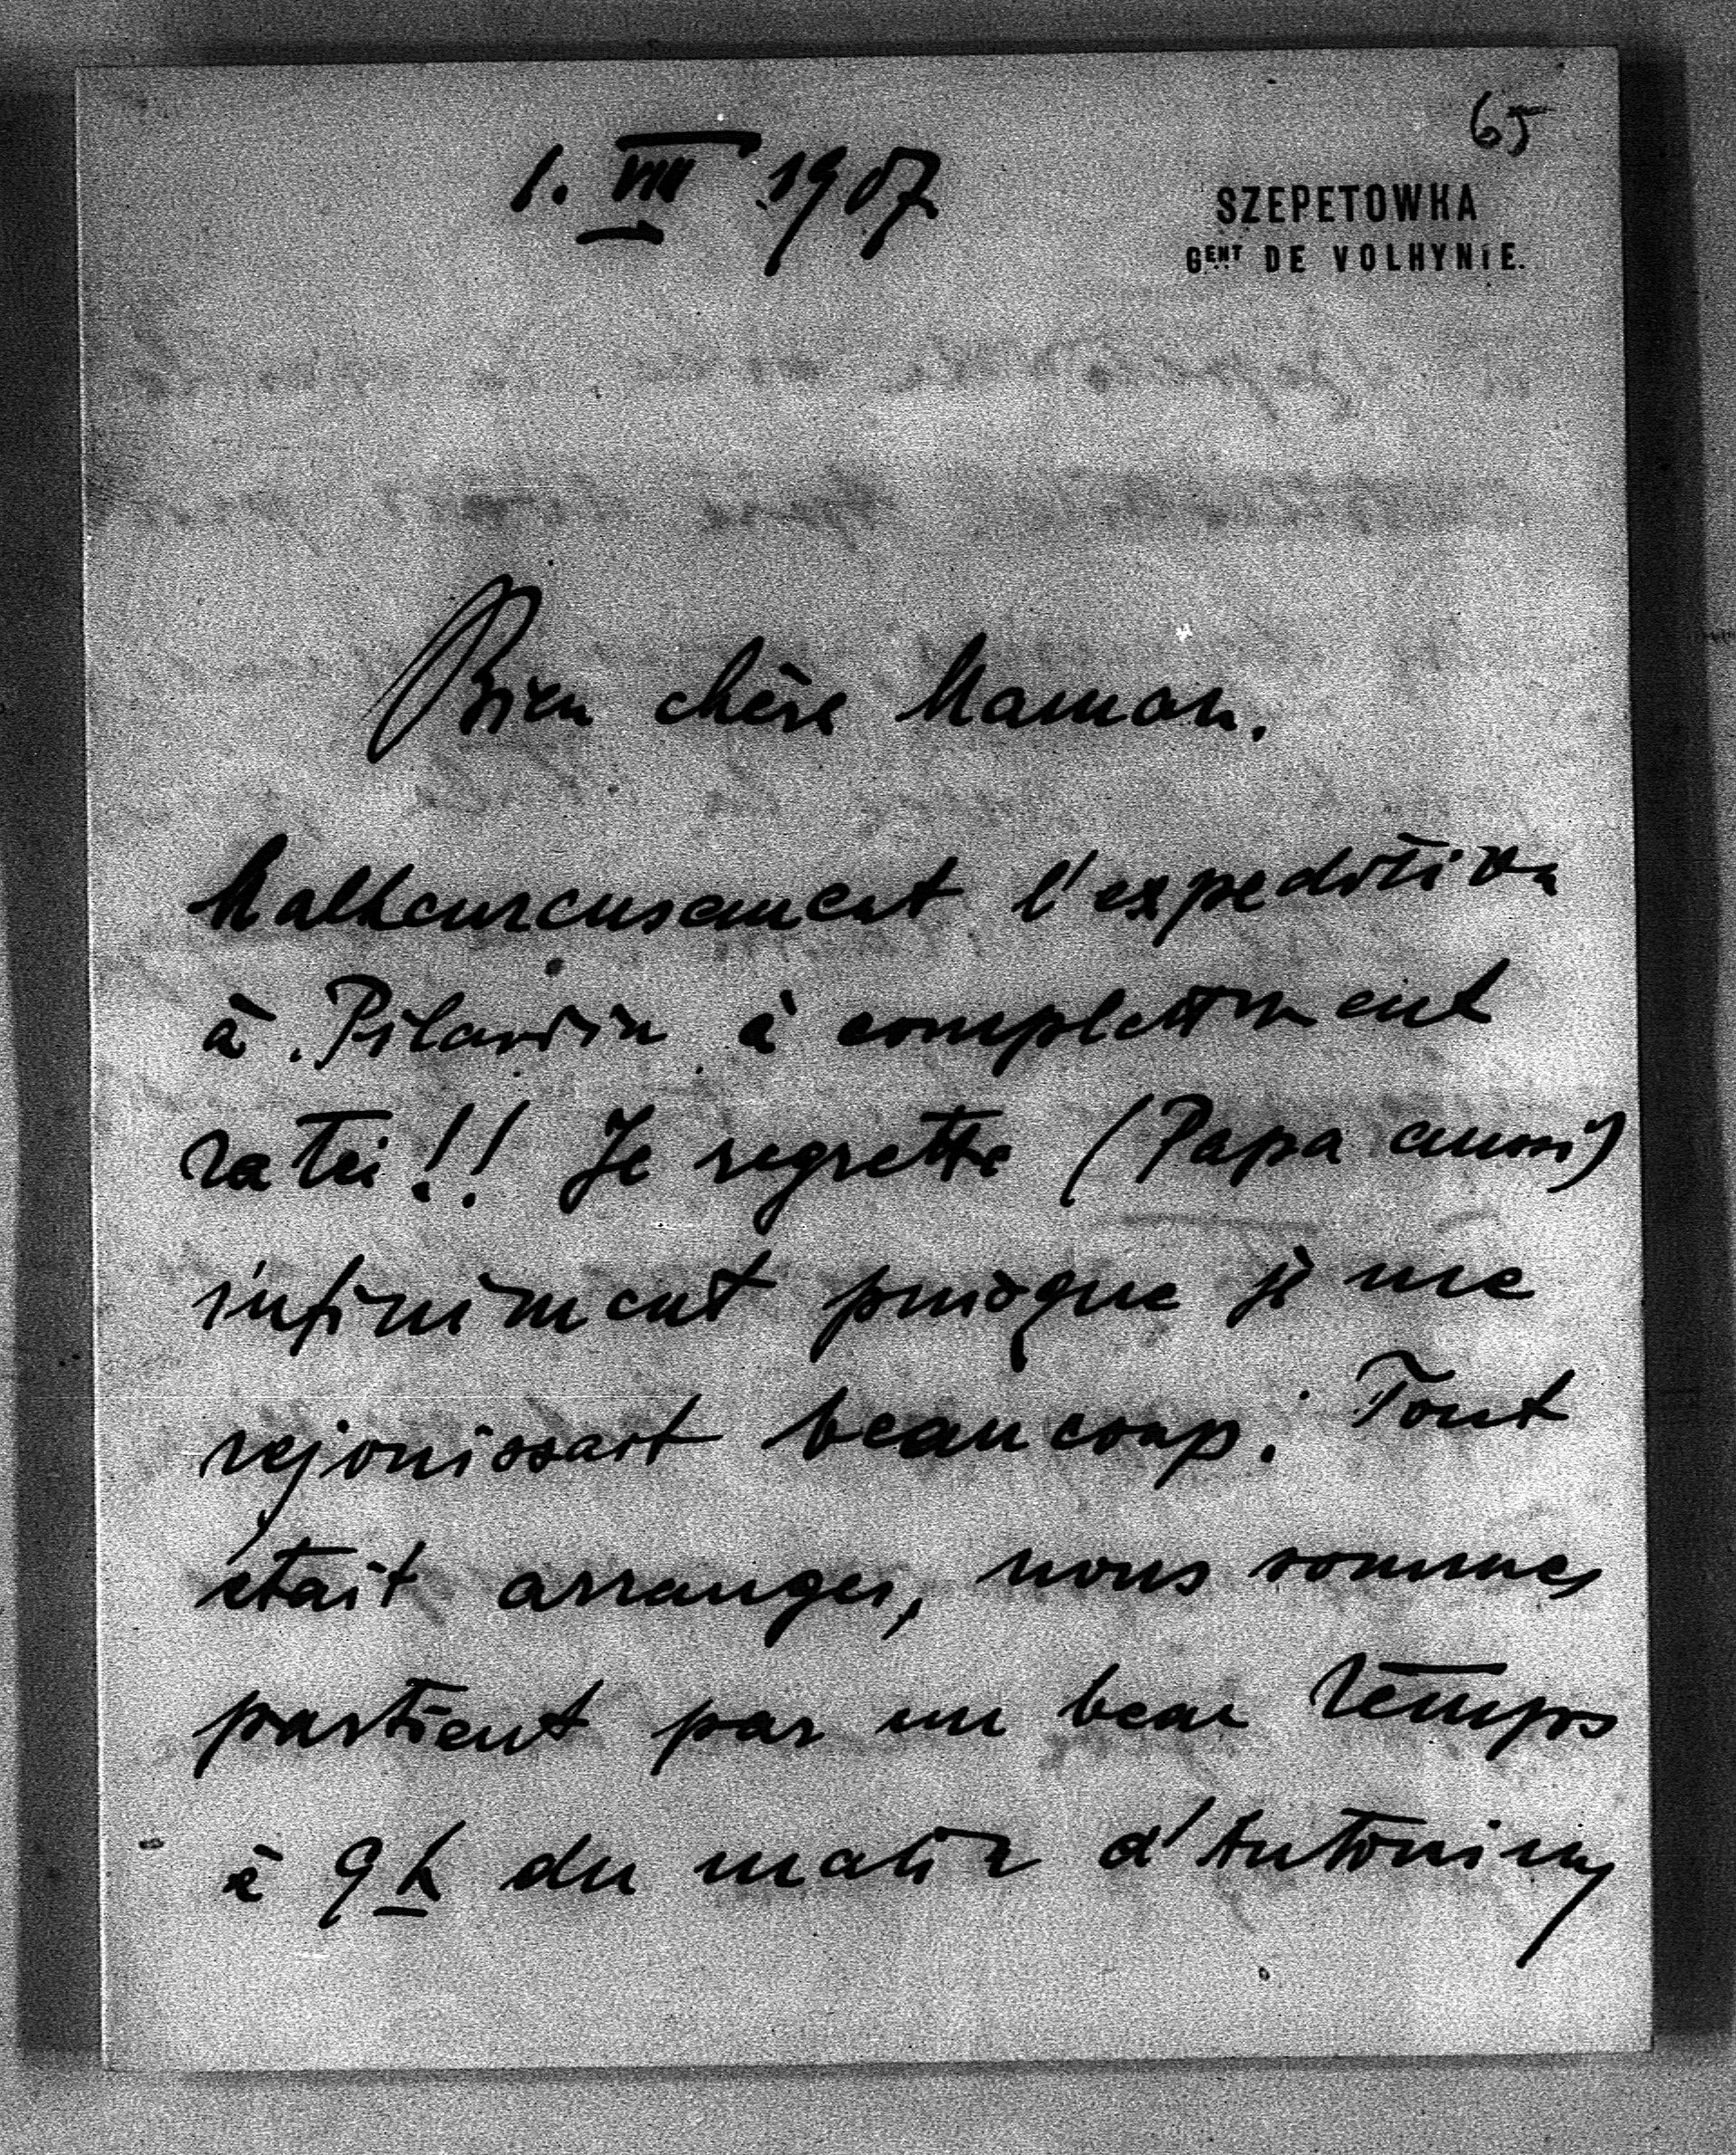 65
1. VIII 1907
SZEPETOWKA
GENT DE VOLHYNIE.
Bien chère Maman.
Malheureusement l'expedition
à Pilawin à complettment
ratei!! Je regrette (Papa aussi)
infiniment puisque je me
rejouissait beaucoup. Tout
était arrangei, nous sommes
partient par un beau temps
à 9 h du matin d'Antoniny